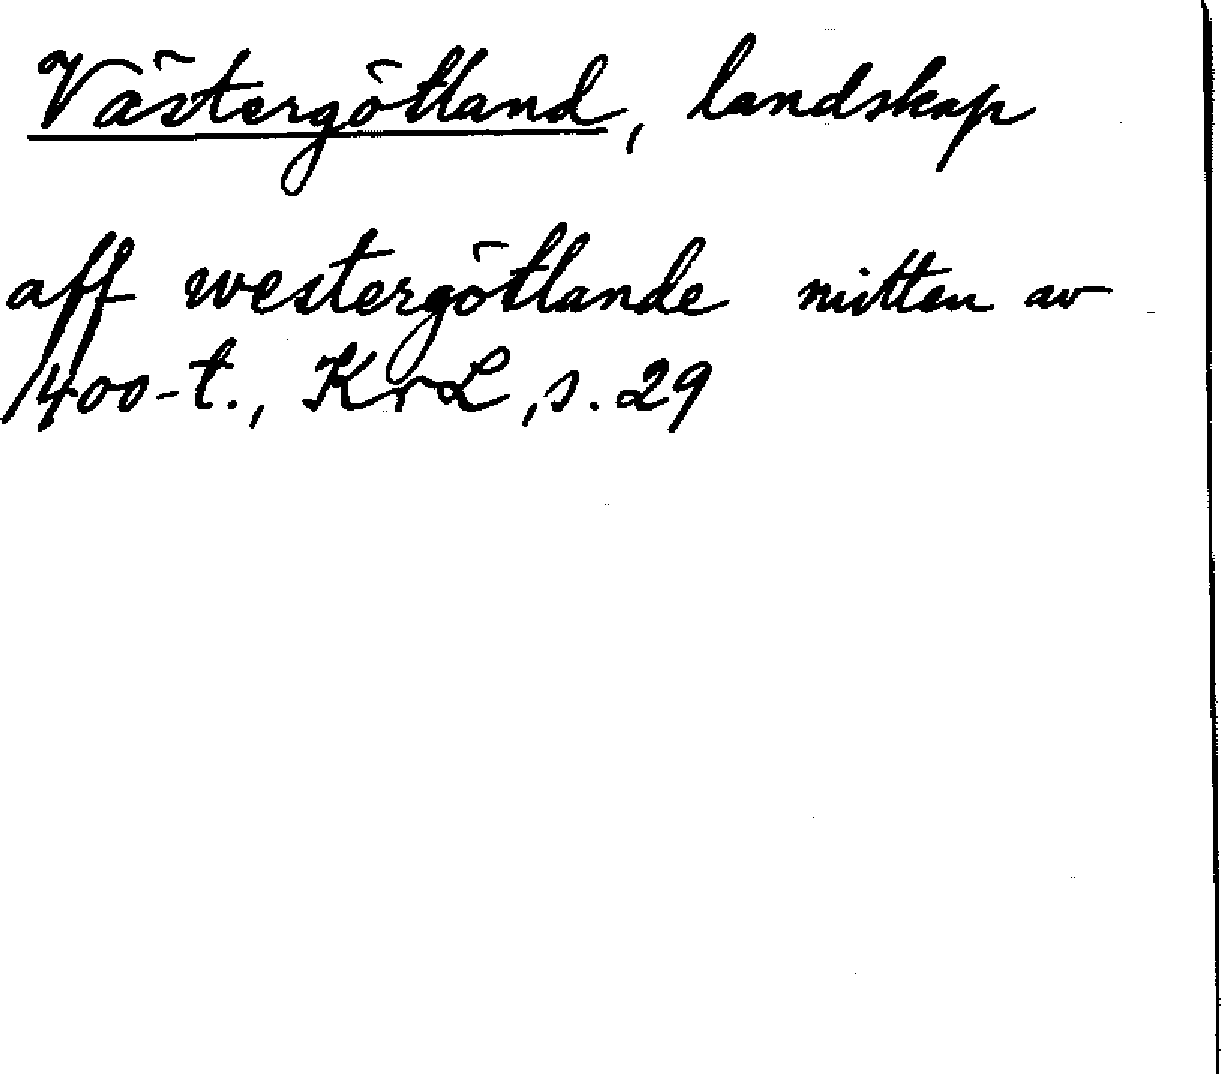 Västergötland, landskap
aff westergötlande mitten av
1400-t., KrL, s. 29